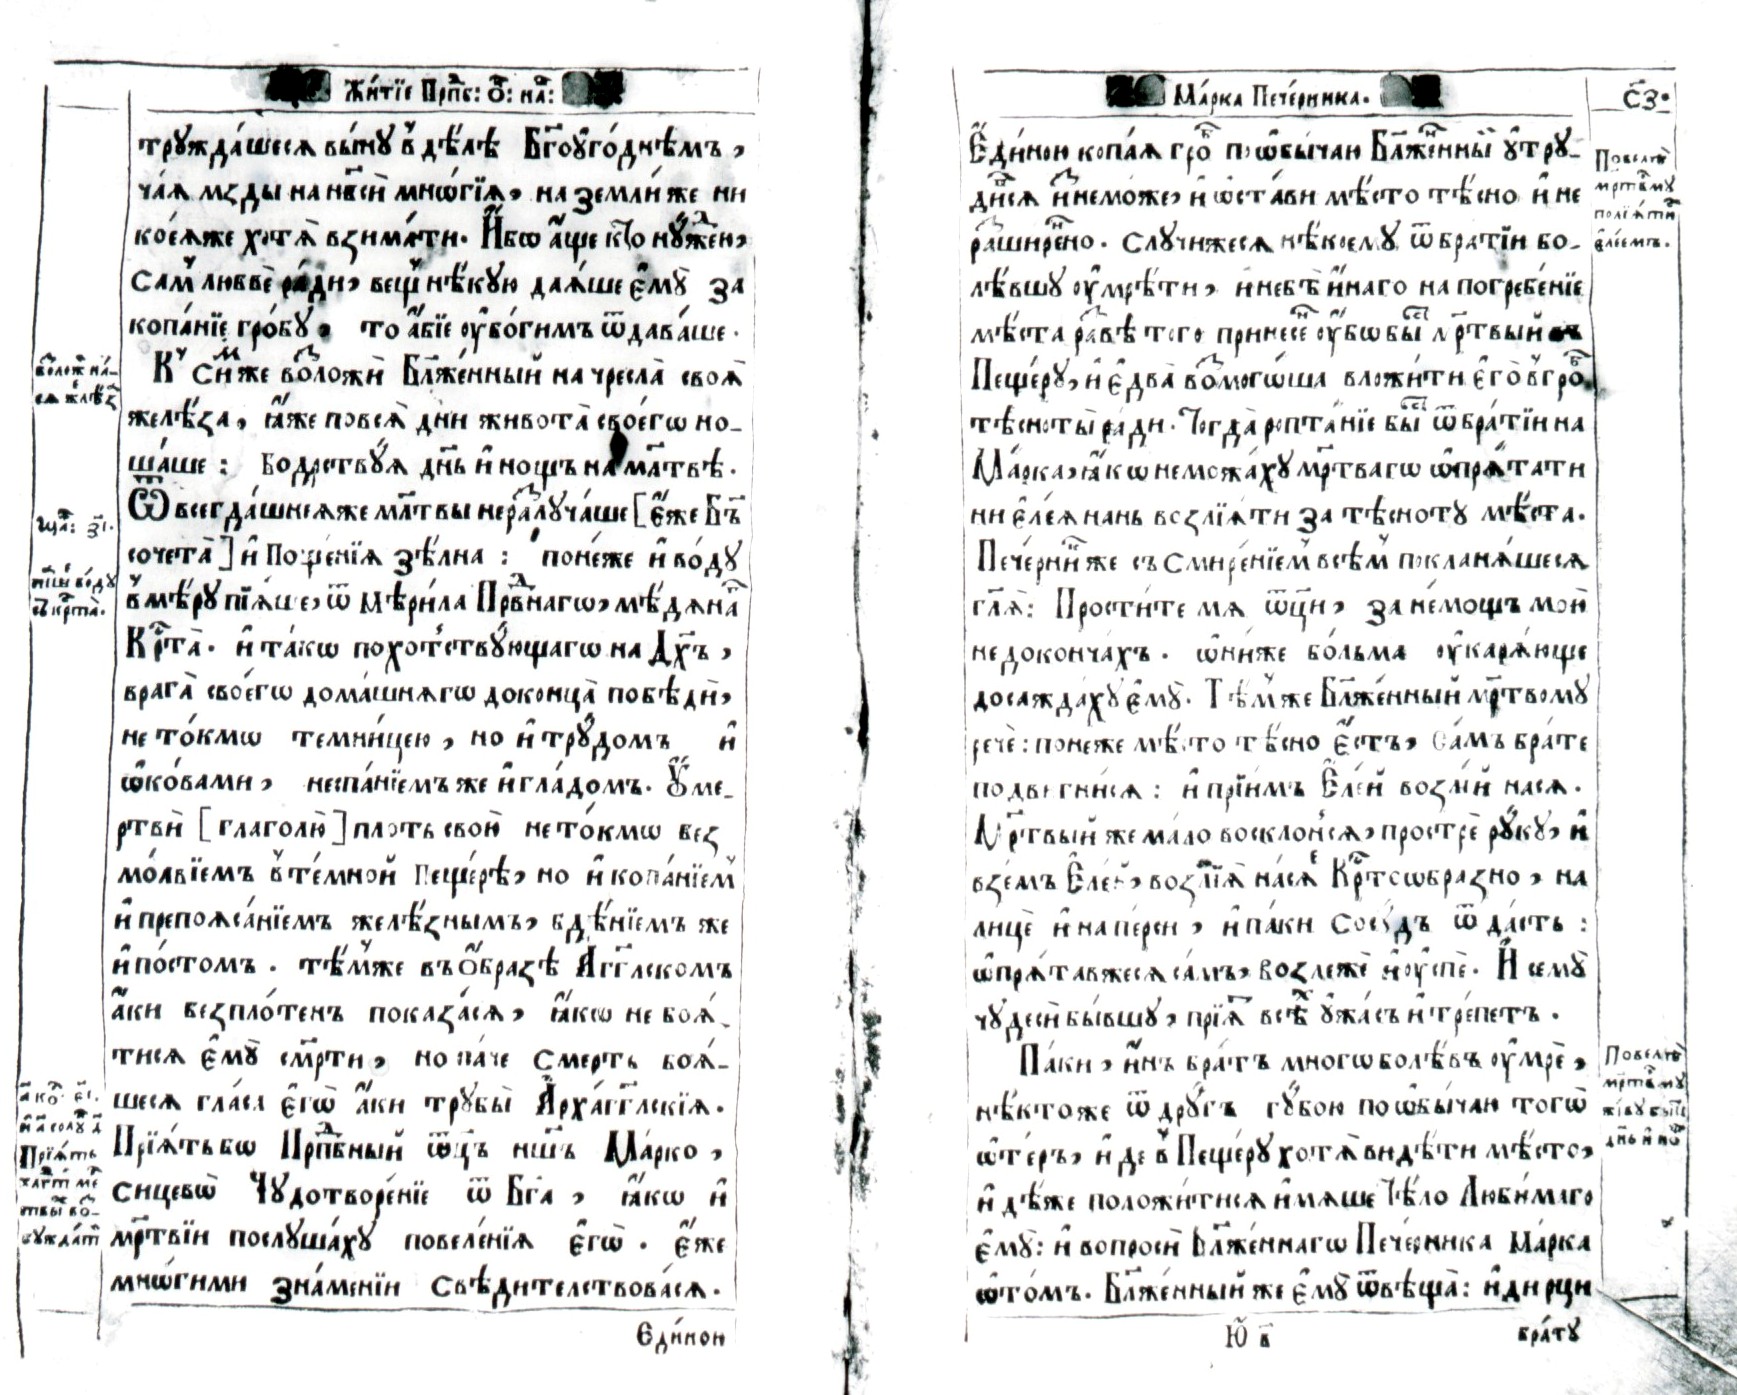 Жи́тїе Прпⷣб: Ѻ҃: на́:
трꙋжда́шесѧ вы́нꙋ в̾ дѣ́лѣ Бг҃оꙋго́днѣмъ,
ча́ѧ мзды на нб҃сѝ мнѡ́гїѧ, на землѝ же ни
коеѧ́же хотѧ̀ взима́ти. И҆́бѡ а҆́ще кто̀ нꙋ́жденъ,
Са́м̾ любвѐ ра́ди, вещ̾ нѣ́кꙋю даѧ́ше є҆мꙋ̀ за
копа́нїе гро́бꙋ, то а҆́бїе ᲂу҆бо́гимъ ѿдава́ше.
К̾ си́мже возложѝ Бл҃же́нный на чресла̀ своѧ̀
желѣ́за, ꙗ҆́же повсѧ̀ дни живота̀ своегѡ но-
ша́ше: бодрствꙋ́ѧ дн҃ь и҆ нощъ на мл҃твѣ.
Ѿ всегда́шнеѧже мл҃твы не разлꙋча́ше [є҆́же Бг҃ъ
сочета̀] и҆ Поще́нїѧ зѣ́лна: поне́же и҆ во́дꙋ
в̾мѣ́рꙋ пїѧ́ше, ѿ мѣри́ла Прпⷣбнагѡ, мѣ́дѧна
Крⷭ҇та̀. и҆ та́кѡ похотствꙋ́ющагѡ на Дх҃ъ,
врага̀ своегѡ дома́шнѧгѡ доконца̀ побѣдѝ,
не то́кмѡ темни́цею, но и҆ трꙋдо́мъ и҆
ѡ҆ко́вами, неспа́нїемъ же и҆ гла́домъ. Ꙋ҆ме-
ртвѝ [глаголю̀] пло́ть свою̀ не то́кмѡ без
мо́лвїемъ в̾ те́мной Пеще́рѣ, но и҆ копа́нїем̾
и҆ препоѧса́нїемъ желѣ́знымъ, бдѣ́нїемъ же
и҆ по́стомъ. тѣ́м̾же въ ѻ҆́бразѣ А҆́гг҃лскомъ
а҆́ки безпло́тенъ показа́сѧ, ꙗ҆́кѡ не боѧ́-
тисѧ є҆мꙋ̀ см҃рти, но па́че Смерть боѧ́-
шесѧ гла́са є҆гѡ̀ а҆́ки трꙋбы̀ А҆рха́гг҃лскїѧ.
Прїѧ́тъ бѡ Прпⷣбный ѿц҃ъ нш҃ъ Ма́рко,
сицевѡ̀ Чꙋдотворе́нїе ѿ Бг҃а, ꙗ҆́кѡ и҆
мр҃твїи послꙋша́хꙋ повеле́нїѧ є҆гѡ̀. є҆́же
мнѡ́гими зна́менїи свѣ́дителствова́сѧ.
Єди́ною
Ма́рка Пече́рника.
С҃з.
Є҆ди́ною копа́ѧ гро́б̾ по ѡ҆бы́чаю Бл҃же́нны́й ᲂу҆трꙋ-
ди́сѧ и҆ немо́же, и҆ ѡ҆ста́ви мѣ́сто тѣ́сно и҆ не
расшире́но. Слꙋчи́жесѧ нѣ́коемꙋ ѿ бра́тїи бо-
лѣ́вшꙋ ᲂу҆мрѣ́ти, и҆ не бѣ̀ и҆на́го на погребе́нїе
мѣ́ста ра́звѣ того̀ принесе́н ᲂу҆́бѡ бы́сть мр҃твый въ
Пеще́рꙋ, и҆ є҆два̀ возмого́ша вложи́ти є҆го̀ в̾ гро́б
тѣсноты̀ ра́ди. Тогда̀ ропта́нїе бы́сть ѿ бра́тїи на
Ма́рка, ꙗ҆́кѡ не можа́хꙋ мр҃твагѡ ѡ҆прѧ́тати
ни є҆ле́ѧ нань возлїѧ́ти за тѣ́снотꙋ мѣ́ста.
Пече́рник̾ же съ смире́нїем̾ всѣ́м̾ покланѧ́шесѧ
гл҃ѧ̀: Прости́те мѧ ѿц҃и, за не́мощъ мою̀
недоконча́хъ. ѻ҆ни́же бо́льма ᲂу҆карѧ́юще
досажда́хꙋ є҆мꙋ̀. Тѣ́м̾же Бл҃же́нный мр҃твомꙋ
речѐ: поне́же мѣ́сто тѣ́сно є҆́стъ, Са́мъ бра́те
подви́гнисѧ: и҆ прїи́мъ Є҆ле́й возлїй на сѧ.
Мр҃твый же ма́ло восклони́сѧ, прострѐ рꙋ́кꙋ, и҆
взе́мъ Є҆ле́й, возлїѧ̀ на́сѧ Крⷭ҇тоѡбразно, на
лицѐ и҆ на пе́рси, и҆ па́ки сосꙋ́дъ ѿда́стъ:
ѡ҆прѧ́тавжесѧ са́мъ, возлежѐ и҆ ᲂу҆спѐ. И҆ семꙋ̀
чꙋдесѝ бы́вшꙋ, прїѧ̀ всѣ́х ᲂу҆́жасъ и҆ тре́петъ.
Па́ки, и҆́нъ бра́тъ мно́гѡ болѣ́въ ᲂу҆мрѐ,
нѣ́кто же ѿ дрꙋ́гъ гꙋ́бою по ѡ҆бы́чаю тогѡ̀
ѡ҆те́ръ, и҆де в̾ Пеще́рꙋ хотѧ̀ ви́дѣти мѣ́сто,
и҆дѣ́же положи́тисѧ и҆мѧ́ше Тѣ́ло Люби́маго
є҆мꙋ̀: и҆ вопросѝ Бл҃же́ннагѡ Пече́рника Ма́рка
ѡ҆ то́мъ. Бл҃же́нный же є҆мꙋ̀ ѿвѣща̀: и҆дѝ рци
Ю҃ в҃
бра́тꙋ